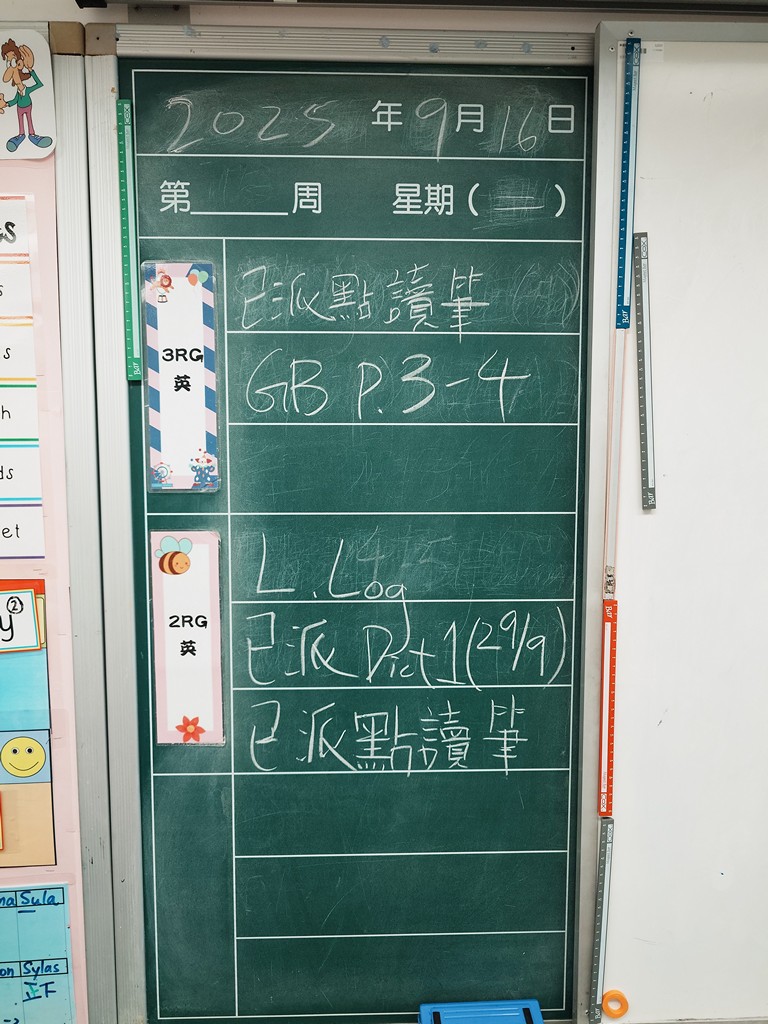 2025 年 9 月 16 日
第 周 星期 ( 二 )
3RG
英
已派點讀筆
GB P.3-4
2RG
英
L. Log
已派 Dict 1 (29/9)
已派點讀筆
Sula
Sylas
正下